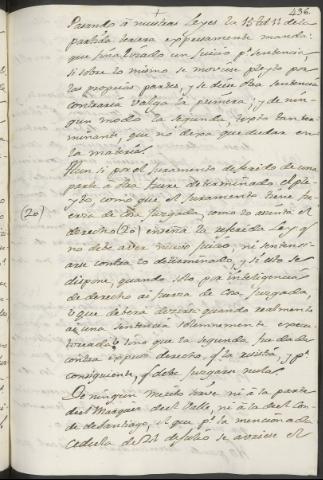 436.
Pasando á nuestras Leyes la 13 tit 11 dela
partida tercera expresamente manda:
que finalizado un juicio pr sentencia,
si sobre lo mismo se mueve pleyto por
las propias partes, y se dice otra sentencia
contraria valga la primera; y de nin-
gun modo la segunda, texto tan ter-
minante, que no deja que dudar en
la materia.
Aun si por el Juramento deferido de una
parte á otra fuere determinado el ple-
yto, como que el Juramento tiene fu-
erza de Cosa Juzgada, como lo asienta el
(20)
derecho (20) enseña la referida Ley q.
no debe aver nuevo Juicio, ni sentenci-
arse contra lo determinado, y si esto se
dispone, quando solo por inteligencia
de derecho ai fuerza de Cosa Juzgada,
que deberá decirse quando realmente
ai una sentencia solemnemente execu-
toriada? Sino que la segunda, fue dada
contra expreso derecho, q. la resista, y pr
consiguiente, q. debe juzgarse nula.
De ningun merito trahe ni á la parte
del Marques del Valle, ni á la del Con-
de de Santiago, el que pr la mencionada
Cedula de 21 de Julio se aprueve el